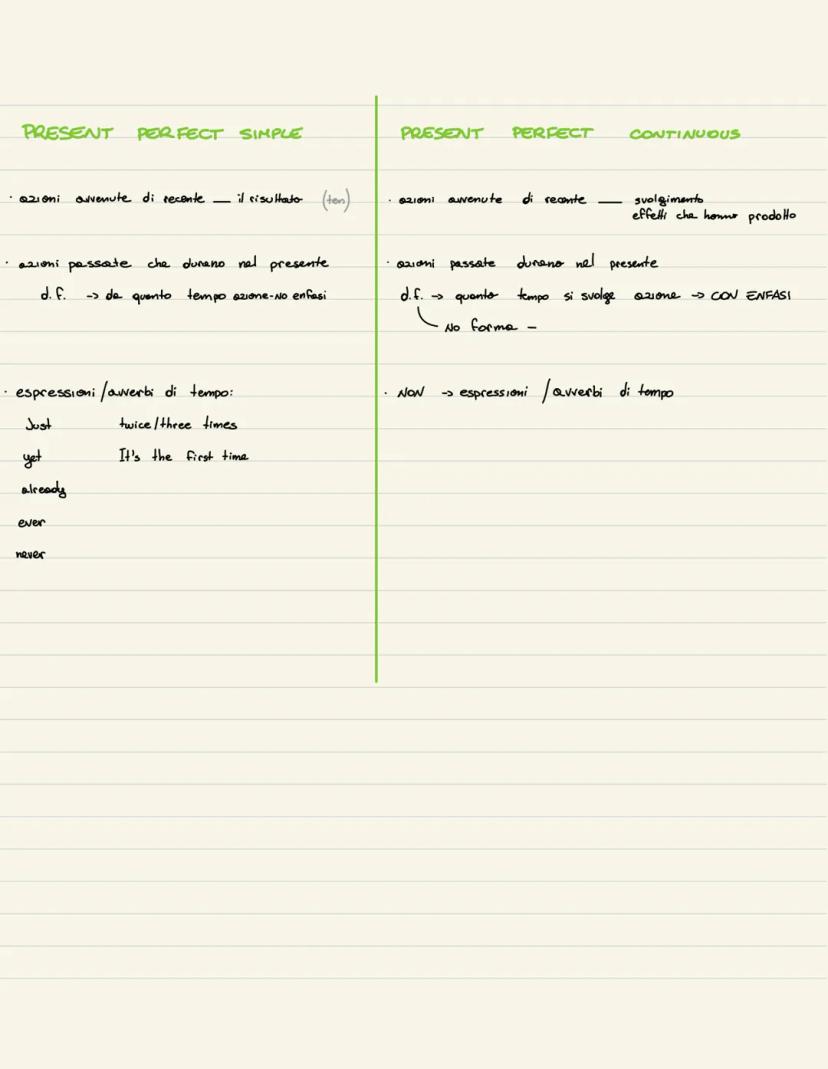 PRESENT PERFECT SIMPLE
· azioni avvenute di recente — il risultato (ten)
· azioni passate che durano nel presente
d.f. -> da quanto tempo azione-No enfasi
· espressioni/avverbi di tempo:
Just twice/three times
yet It's the first time
already
ever
never
PRESENT PERFECT CONTINUOUS
· azioni avvenute di recente — svolgimento
effetti che hanno prodotto
· azioni passate durano nel presente
d.f. -> quanto tempo si svolge azione -> CON ENFASI
No forma -
· NON -> espressioni / avverbi di tempo